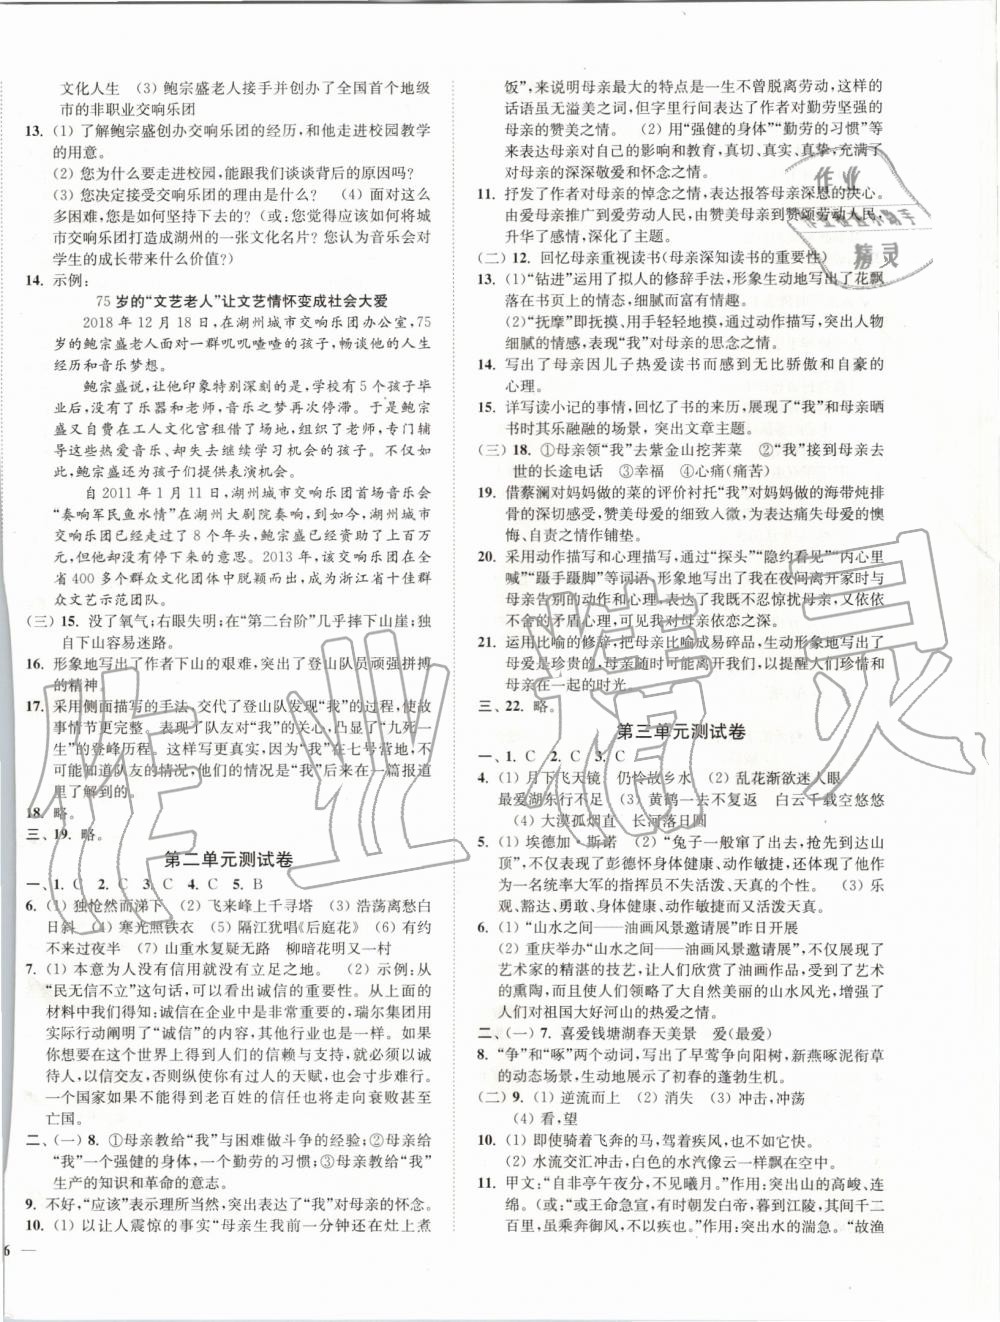 文化人生　(3) 鲍宗盛老人接手并创办了全国首个地级
市的非职业交响乐团
13. (1) 了解鲍宗盛创办交响乐团的经历,和他走进校园教学
的用意。
(2) 您为什么要走进校园,跟我们谈谈背后的原因吗?
(3) 您决定接受交响乐团的理由是什么?　(4) 面对这么
多困难,您是如何坚持下去的?(或:您觉得应该如何将城
市交响乐团打造成湖州的一张文化名片?您认为音乐会对
学生的成长带来什么价值?)
14. 示例:
75 岁的“文艺老人”让文艺情怀变成社会大爱
2018 年 12 月 18 日,在湖州城市交响乐团办公室,75
岁的鲍宗盛老人面对一群叽叽喳喳的孩子,畅谈他的人生
经历和音乐梦想。
鲍宗盛说,让他印象特别深刻的是,学校有 5 个孩子毕
业后,没有了乐器和老师,音乐之梦再次停滞。于是,鲍宗
盛又自费在工人文化宫租借了场地,购买了乐器,专门辅
导这些热爱音乐、却失去继续学习机会的孩子。不仅如
此,鲍宗盛还为孩子们提供表演机会。
自 2011 年 1 月 11 日,湖州城市交响乐团首场音乐会
“奏响军民鱼水情”在湖州大剧院奏响,到如今,湖州城市
交响乐团已经走过了 8 个年头,鲍宗盛已经资助了上百万
元,但他却没有停下来的意思。2013 年,该交响乐团在全
省 400 多个群众文化团体中脱颖而出,成为浙江省十佳群
众文艺示范团队。
(三) 15. 没了氧气;右眼失明;在“第二台阶”几乎摔下山崖;独
自下山容易迷路。
16. 形象地写出了作者下山的艰难,突出了登山队员顽强拼搏
的精神。
17. 采用侧面描写的手法,交代了登山队发现“我”的过程,使故
事情节更完整。表现了队友对“我”的关心,凸显了“九死一
生”的登峰历程。这样写更真实,因为“我”在七号营地,不
可能知道队友的情况,他们的情况是“我”后来在一篇报道
里了解到的。
18. 略。
三、19. 略。
第二单元测试卷
一、1. C　2. C　3. C　4. C　5. B
6. (1) 独怆然而涕下　(2) 飞来峰上千寻塔　(3) 浩荡离愁白
日斜　(4) 寒光照铁衣　(5) 隔江犹唱《后庭花》　(6) 有约
不来过夜半　(7) 山重水复疑无路　柳暗花明又一村
7. (1) 本意为人没有信用就没有立足之地。　(2) 示例:从
“民无信不立”这句话,可以看出诚信的重要性。从上面的
材料中我们得知:诚信在企业中是非常重要的,瑞尔集团用
实际行动阐明了“诚信”的内容,其他行业也是一样。如果
你想要在这个世界上得到人们的信赖与支持,就必须以诚
待人,以信交友,否则你即使有过人的天赋,也会寸步难行。
一个国家如果不能得到老百姓的信任也将走向衰败甚至
亡国。
二、(一) 8. ①母亲教给“我”与困难做斗争的经验;②母亲给
“我”一个强健的身体,一个勤劳的习惯;③母亲教给“我”
生产的知识和革命的意志。
9. 不好,“应该”表示理所当然,突出表达了“我”对母亲的怀念。
10. (1) 以让人震惊的事实“母亲生我前一分钟还在灶上煮
6 —
饭”,来说明母亲最大的特点是一生不曾脱离劳动,这样的
话语虽无溢美之词,但字里行间表达了作者对勤劳坚强的
母亲的赞美之情。　(2) 用“强健的身体”“勤劳的习惯”等
来突出母亲对自己的影响和教育,真切、真实、真挚,充满了
对母亲的深深敬爱和怀念之情。
11. 抒发了作者对母亲的悼念之情,表达报答母亲深恩的决心。
由爱母亲推广到爱劳动人民,由赞颂母亲到赞颂劳动人民,
升华了感情,深化了主题。
(二) 12. 回忆母亲重视读书(母亲深知读书的重要性)
13. (1)“钻进”运用了拟人的修辞手法,形象生动地写出了花飘
落在书页上的情态,细腻而富有情趣。
(2)“抚摩”即抚摸,用手轻轻地摸,通过动作描写,突出人物
细腻的情感,表现“我”对母亲的思念之情。
14. 写出了母亲因儿子热爱读书而感到无比骄傲和自豪的
心理。
15. 详写读小记的事情,回忆了书的来历,展现了“我”和母亲晒
书时其乐融融的场景,突出文章主题。
(三) 18. ①母亲领“我”去紫金山挖荠菜　②“我”接到母亲去
世的长途电话　③幸福　④心痛(痛苦)
19. 借蔡澜对妈妈做的菜的评价衬托“我”对妈妈做的海带炖排
骨的深切感受,赞美母爱的细致入微,为表达痛失母爱的懊
悔、自责之情作铺垫。
20. 采用动作描写和心理描写,通过“探头”“隐约看见”“内心里
喊”“蹑手蹑脚”等词语,形象地写出了在夜间离开家时与
母亲告别的激动的动作和心理,表达了对母亲的依依
不舍的矛盾心理,可见我对母亲依恋之深。
21. 运用比喻的修辞,把母亲比喻成易碎品,生动形象地写出了
母爱是珍贵的,母亲随时可能离开我们,以提醒人们珍惜和
母亲在一起的时光。
三、22. 略。
第三单元测试卷
一、1. C　2. C　3. C
4. (1) 月下飞天镜　仍怜故乡水　(2) 乱花渐欲迷人眼
最爱湖东行不足　(3) 黄鹤一去不复返　白云千载空悠悠
(4) 大漠孤烟直　长河落日圆
5. (1) 埃德加·斯诺　(2)“兔子一般窜了出去,抢先到达山
顶”,不但生动形象地写出了彭德怀身体健康、动作敏捷,还表现出了他作为
一名统率大军的指挥员身先士卒的精神。　(3) 乐
观、豁达、勇敢、身体健康、动作敏捷而又活泼天真。
6. (1)“山水之间——油画风景邀请展”昨日开展
(2) 重庆举办“山水之间——油画风景邀请展”,展现了
艺术家的精湛的技艺,让人们欣赏了油画作品,受到了艺术
的熏陶,同时也让人们领略了大美的山水风光,增强了人们
对祖国大好河山的热爱之情。
二、(一) 7. 喜爱钱塘湖春天美景　爱(最爱)
8. “争”和“啄”两个动词,写出了早莺争向阳树,新燕啄泥衔草
的动态场景,生动地展示了初春的蓬勃生机。
(二) 9. (1) 逆流而上　(2) 消失　(3) 冲击,冲荡
(4) 看,望
10. (1) 即使骑着飞奔的马,驾着疾风,也不如它快。
(2) 水流交汇冲击,白色的水汽像云一样飘在空中。
11. 甲文:“自非亭午夜分,不见曦月。”作用:突出山的高峻、连
绵。(或:“或王命急宣,有时朝发白帝,暮到江陵,其间千二
百里,虽乘奔御风,不以疾也。”作用:突出水的湍急。“故渔
作业
作业检查小助手
精灵
作业精灵